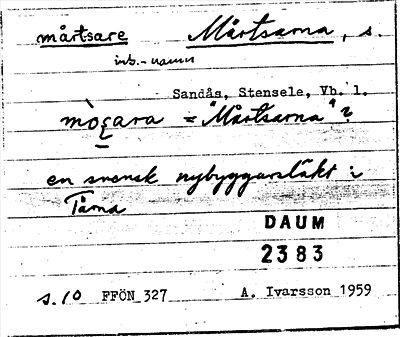 mårtsare Mårtsarna, s.
inb.-namn
Sandås, Stensele, Vb. l.
= "Mårtsarna" ?
en svensk nybyggarsläkt i
Tärna
DAUM
2383
s. 10 FFÖN 327 A. Ivarsson 1959